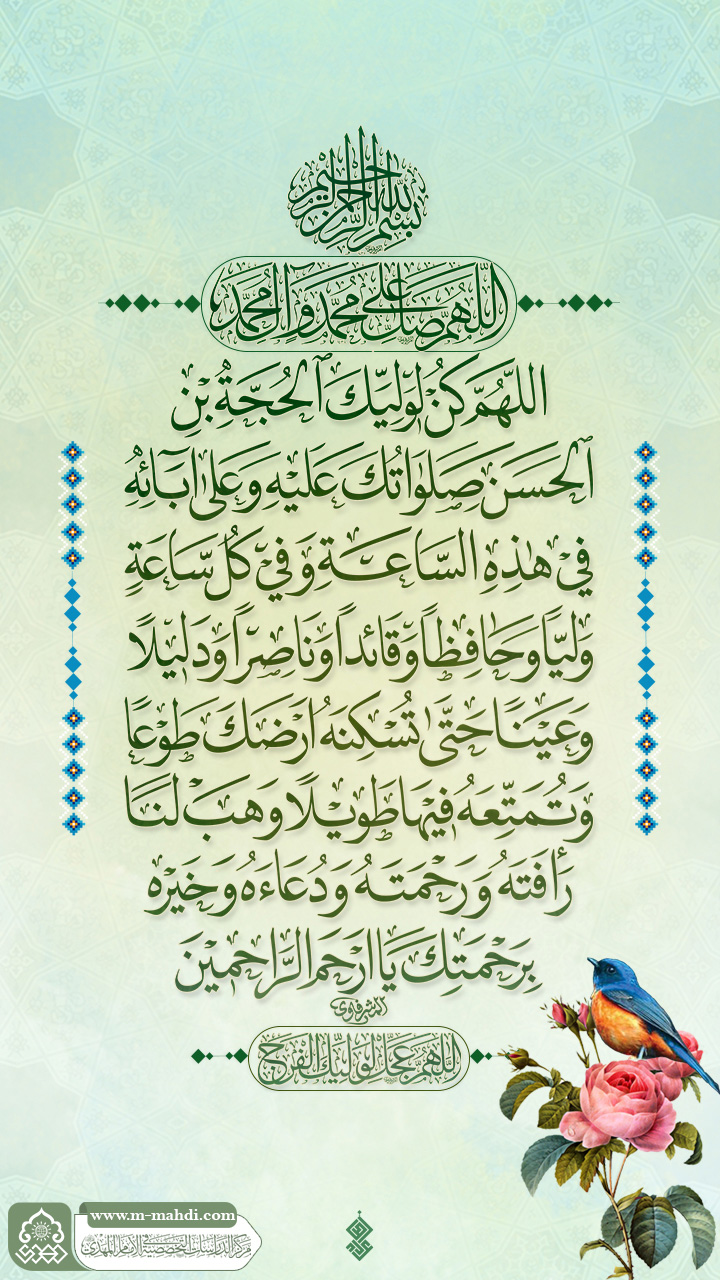 بسم الله الرحمن الرحيم
اللهم صل على محمد وآل محمد
اللَّهُمَّ كُنْ لِوَلِيِّكَ ٱلْحُجَّةِ بْنِ
ٱلْحَسَنِ صَلَوٰاتُكَ عَلَيْهِ وَعَلىٰ آبَائِهِ
فِي هٰذِهِ السَّاعَةِ وَفِي كُلِّ سَاعَةٍ
وَلِيّاً وَحَافِظاً وَقَائِداً وَنَاصِراً وَدَلِيلًا
وَعَيْنَاً حَتَّىٰ تُسْكِنَهُ اَرْضَكَ طَوْعاً
وَتُمَتِّعَهُ فِيهَا طَوِيْلًا وَهَبْ لَنَا
رَأفَتَهُ وَرَحْمَتَهُ وَدُعَاءَهُ وَخَيْرَهُ
بِرَحْمَتِكَ يَا اَرْحَمَ الرَّاحِمِيْنَ
الشرفاوي
اللهم عجل لوليك الفرج
www.m-mahdi.com
مركز الدراسات التخصصية في الإمام المهدي